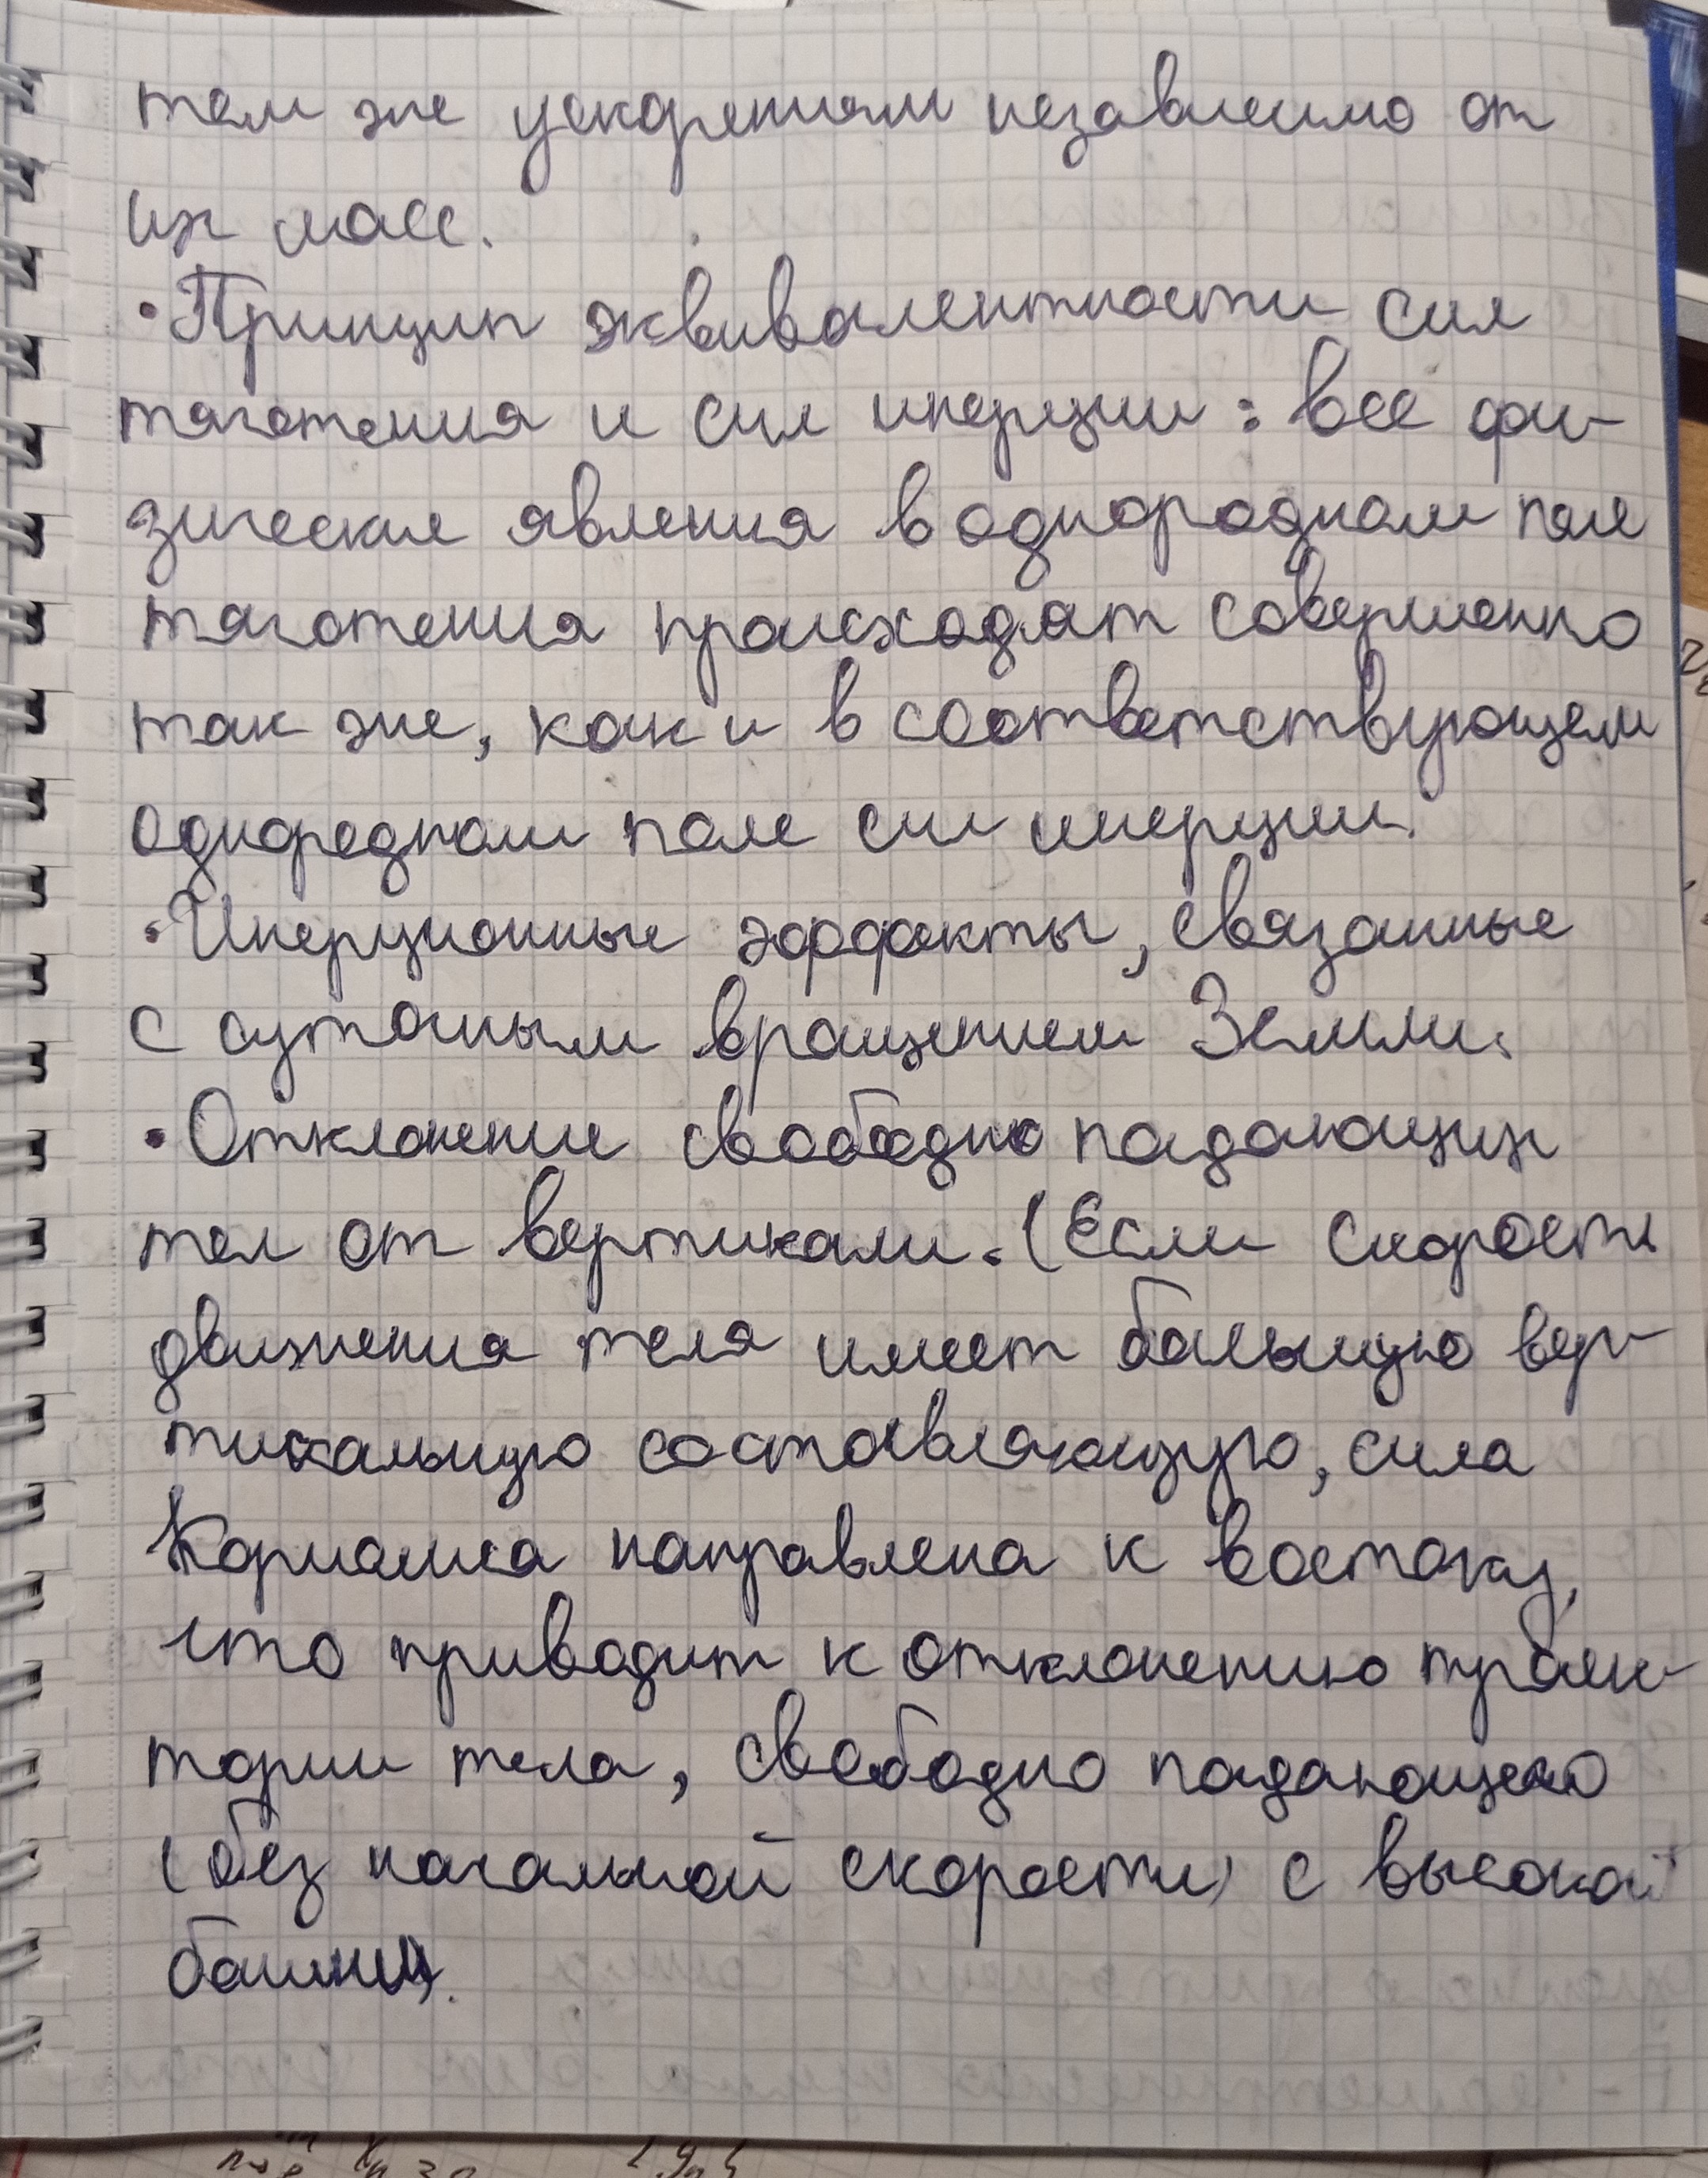 тем же ускорением независимо от
их масс.
• Принцип эквивалентности сил
тяготения и сил инерции: все фи-
зические явления в однородном поле
тяготения происходят совершенно
так же, как и в соответствующем
однородном поле сил инерции.
• Инерционные эффекты, связанные
с суточным вращением Земли.
• Отклонение свободно падающих
тел от вертикали. (Если скорость
движения тела имеет большую вер-
тикальную составляющую, сила
Кориолиса направлена к востоку,
что приводит к отклонению траек-
тории тела, свободно падающего
(без начальной скорости) с высокой
башни.